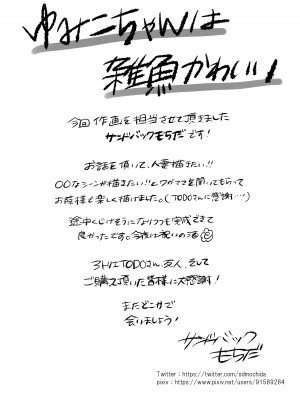 ゆみこちゃんは
雑魚かわいい
今回作画を担当させて頂きました
サンドバックもちだです！
お話を頂いて、人妻描きたい!!
○○なシーンが描きたい!!とワガママを聞いてもらって
お陰様で楽しく描けました。(TODOさんに感謝…!)
途中くじけそうになりつつも完成できて
良かったです。今夜は祝いの酒
3HにTODOさん、友人、そして
ご購入頂いた皆様に大感謝！
またどこかで
会いましょう！
サンドバック
もちだ
Twitter : https://twitter.com/sdmochida
pixiv : https://www.pixiv.net/users/91589284